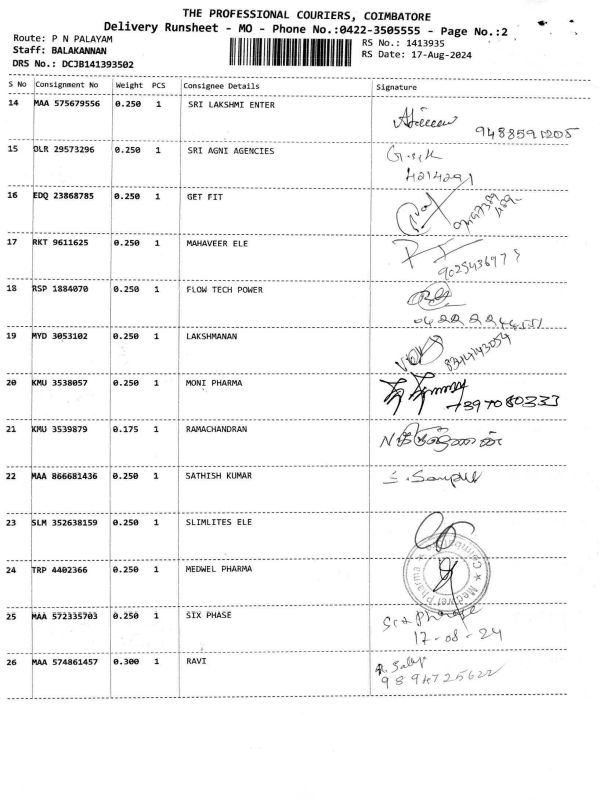 THE PROFESSIONAL COURIERS, COIMBATORE
Delivery Runsheet - MO - Phone No.:0422-3505555 - Page No.:2
Route: P N PALAYAM
RS No.: 1413935
Staff: BALAKANNAN
RS Date: 17-Aug-2024
DRS No.: DCJB141393502
S No Consignment No Weight PCS Consignee Details Signature
14 MAA 575679556 0.250 1 SRI LAKSHMI ENTER
9488591205
15 OLR 29573296 0.250 1 SRI AGNI AGENCIES
4214291
16 EDQ 23868785 0.250 1 GET FIT
17 RKT 9611625 0.250 1 MAHAVEER ELE
18 RSP 1884070 0.250 1 FLOW TECH POWER
19 MYD 3053102 0.250 1 LAKSHMANAN
20 KMU 3538057 0.250 1 MONI PHARMA
21 KMU 3539879 0.175 1 RAMACHANDRAN
22 MAA 866681436 0.250 1 SATHISH KUMAR
23 SLM 352638159 0.250 1 SLIMLITES ELE
24 TRP 4402366 0.250 1 MEDWEL PHARMA
25 MAA 572335703 0.250 1 SIX PHASE
Six Phase
17-08-24
26 MAA 574861457 0.300 1 RAVI
9894725622